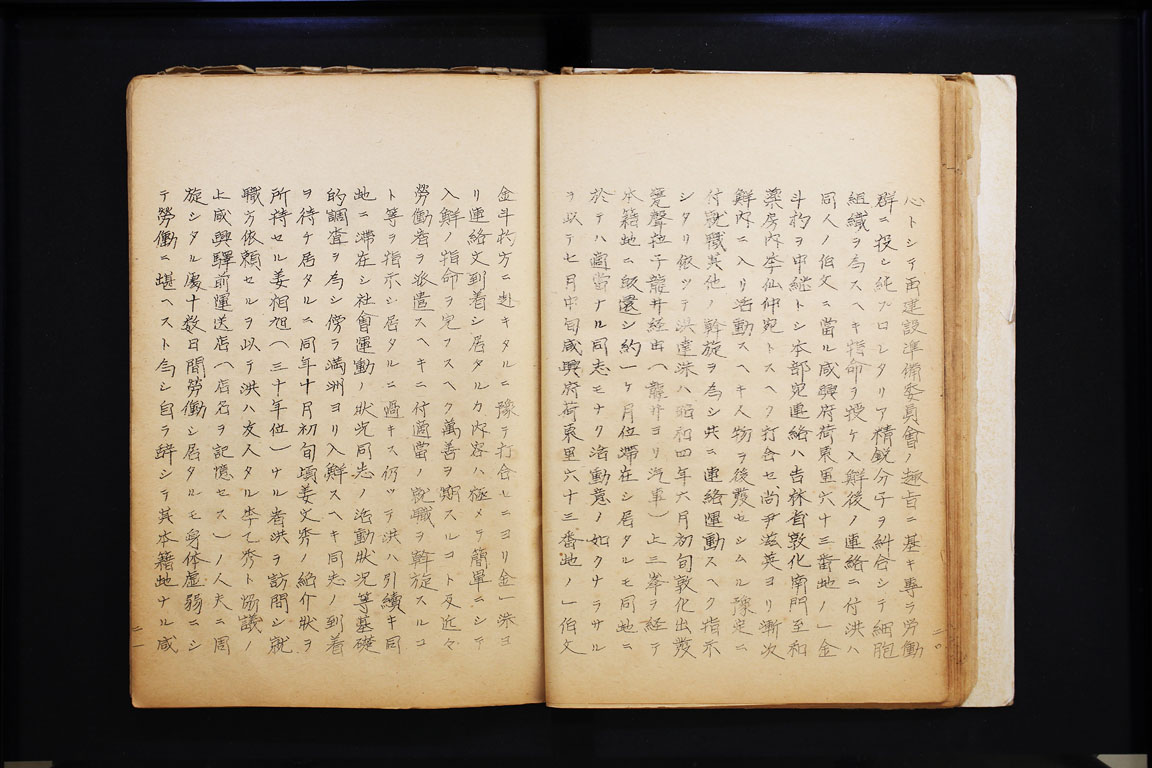 心トシテ再建設準備委員會ノ趣旨ニ基キ專ラ労働
群ニ投シ純プロレタリア精鋭分子ヲ糾合シテ細胞
組織ヲ為スヘキ指命ヲ授ケ入鮮後ノ連絡ニ付洪ハ
同人ノ伯文ニ當ル咸興府荷東里六十三番地ノ」金
斗杓ヲ中継トシ本部宛連絡ハ吉林省敦化南門至和
薬房内李仙仲宛トスヘク打合セ尚尹滋英ヨリ漸次
鮮内ニ入リ活動スヘキ人物ヲ後發セシムル豫定ニ
付就職其他ノ斡旋ヲ為シ共ニ連絡運動スヘク指示
シタリ依ツテ洪達洙ハ昭和四年六月初旬敦化出發
甕聲拉子龍井経由(龍井ヨリ汽車)上三峯ヲ経テ
本籍地ニ皈還シ約一ケ月位滞在シ居タルモ同地ニ
於テハ適當ナル同志モナク活動意ノ如クナラサル
ヲ以テ七月中旬咸興府荷東里六十三番地ノ」伯文
二〇
金斗杓方ニ赴キタルニ豫テ打合セニヨリ金一洙ヨ
リ連絡文到着シ居タルカ内容ハ極メテ簡單ニシテ
入鮮ノ指命ヲ完フスヘク萬善ヲ期スルコト及近々
勞働者ヲ派遣スヘキニ付適當ノ就職ヲ斡旋スルコ
ト等ヲ指示シ居タルニ過キス仍ツテ洪ハ引續キ同
地ニ滞在シ社會運動ノ状況同志ノ活動状况等基礎
的調査ヲ為シ傍ラ満洲ヨリ入鮮スヘキ同志ノ到着
ヲ待チ居タルニ同年十月初旬頃姜文秀ノ紹介狀ヲ
所持セル姜相旭(三十年位)ナル者洪ヲ訪問シ就
職方依頼セルヲ以テ洪ハ友人タル李弌秀ト協議ノ
上咸興驛前運送店(店名ヲ記憶セス)ノ人夫ニ周
旋シタル處十数日間勞働シ居タルモ身体虚弱ニシ
テ勞働ニ堪ヘスト為シ自ラ辞シテ其本籍地ナル咸
二一